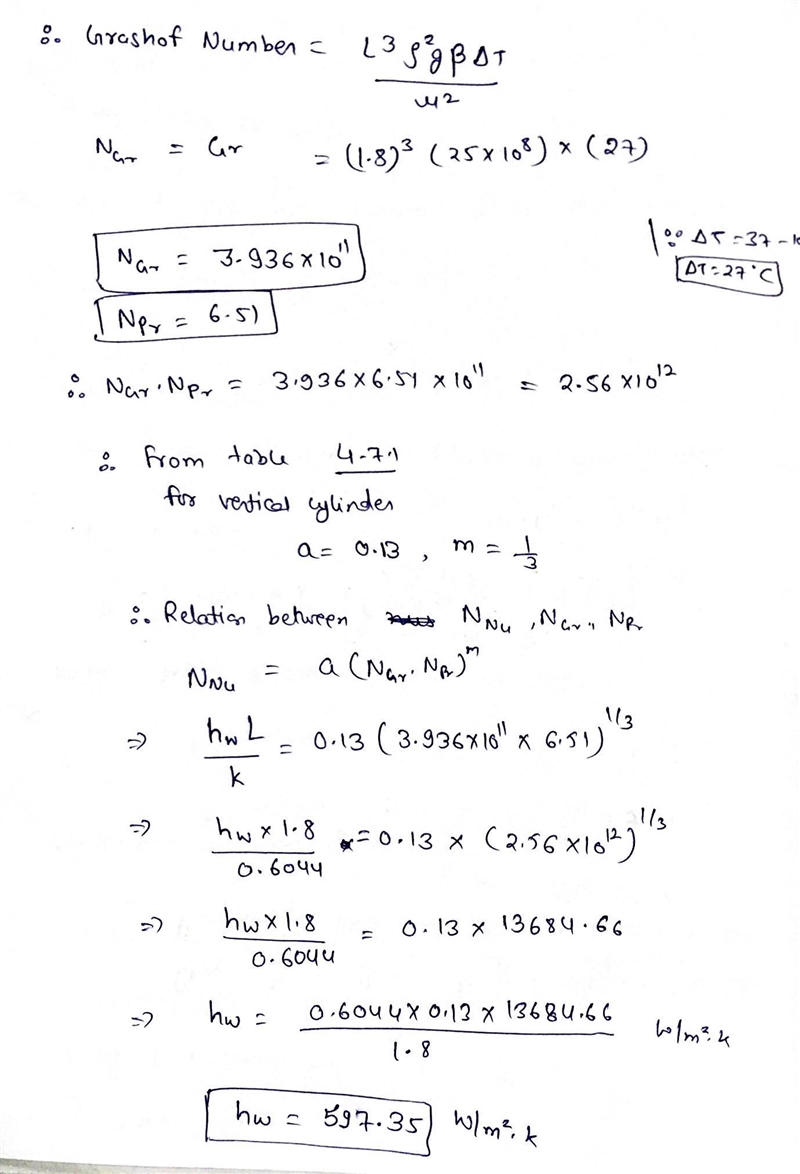 ∴ Grashof Number = L³ρ²gβΔT / μ²
N_Gr = Gr = (1.8)³ (25×10⁸) × (27)
∵ ΔT = 37 -
ΔT = 27°C
N_Gr = 3.936×10¹¹
N_Pr = 6.51
∴ N_Gr. N_Pr = 3.936×6.51 ×10¹¹ = 2.56 ×10¹²
∴ From table 4.7.1
for vertical cylinder
a = 0.13 , m = 1/3
∴ Relation between N_Nu , N_Gr, N_Pr
N_Nu = a (N_Gr. N_Pr)^m
⇒ h_w L / k = 0.13 ( 3.936×10¹¹ × 6.51)^1/3
⇒ h_w × 1.8 / 0.6044 = 0.13 × (2.56 ×10¹²)^1/3
⇒ h_w × 1.8 / 0.6044 = 0.13 × 13684.66
⇒ h_w = 0.6044 × 0.13 × 13684.66 / 1.8 W/m².k
h_w = 597.35 W/m².k